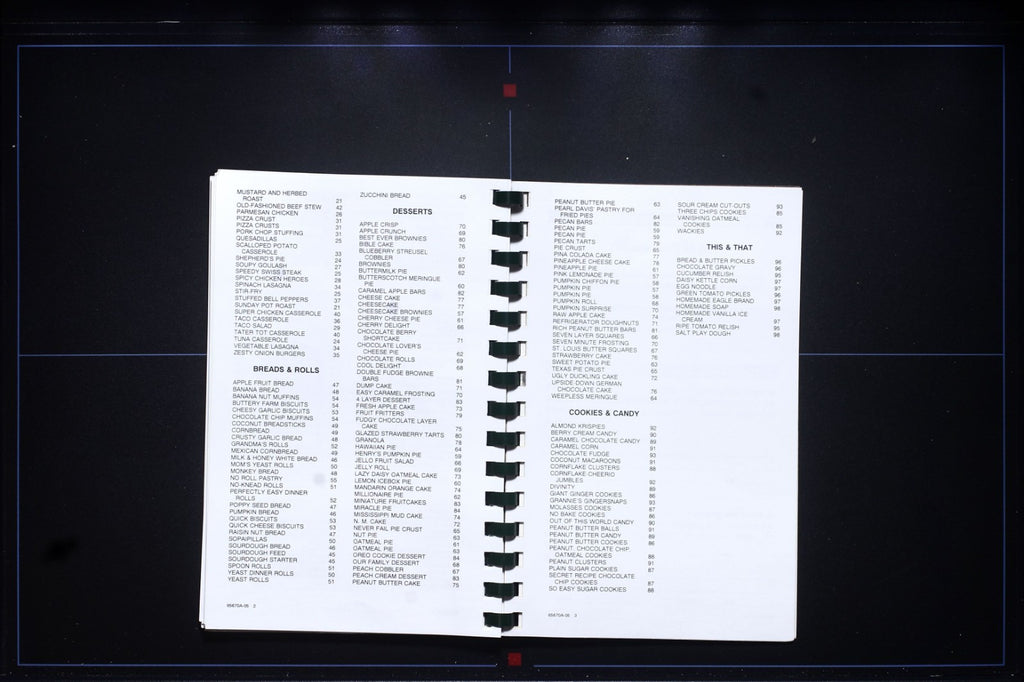 MUSTARD AND HERBED
ROAST 21
OLD FASHIONED BEEF STEW 42
PARMESAN CHICKEN 28
PIZZA CRUST 31
PIZZA CRUSTS 31
PORK CHOP STUFFING 31
QUESADILLAS 25
SCALLOPED POTATO
CASSEROLE 33
SHEPHERD'S PIE 24
SOUPY GOULASH 27
SPEEDY SWISS STEAK 25
SPICY CHICKEN HEROES 28
SPINACH LASAGNA 34
STIR-FRY 25
STUFFED BELL PEPPERS 37
SUNDAY POT ROAST 21
SUPER CHICKEN CASSEROLE 40
TACO CASSEROLE 36
TACO SALAD 29
TATER TOT CASSEROLE 40
TUNA CASSEROLE 24
VEGETABLE LASAGNA 34
ZESTY ONION BURGERS 35
BREADS & ROLLS
APPLE FRUIT BREAD 47
BANANA BREAD 48
BANANA NUT MUFFINS 54
BUTTERY FARM BISCUITS 54
CHEESY GARLIC BISCUITS 53
CHOCOLATE CHIP MUFFINS 54
COCONUT BREADSTICKS 49
CORNBREAD 49
CRUSTY GARLIC BREAD 48
GRANDMA'S ROLLS 52
MEXICAN CORNBREAD 49
MILK & HONEY WHITE BREAD 46
MOM'S YEAST ROLLS 50
MONKEY BREAD 48
NO ROLL PASTRY 55
NO-KNEAD ROLLS 51
PERFECTLY EASY DINNER
ROLLS 52
POPPY SEED BREAD 47
PUMPKIN BREAD 46
QUICK BISCUITS 53
QUICK CHEESE BISCUITS 53
RAISIN NUT BREAD 47
SOPAIPILLAS 50
SOURDOUGH BREAD 46
SOURDOUGH FEED 45
SOURDOUGH STARTER 45
SPOON ROLLS 51
YEAST DINNER ROLLS 50
YEAST ROLLS 51
ZUCCHINI BREAD 45
DESSERTS
APPLE CRISP 70
APPLE CRUNCH 69
BEST EVER BROWNIES 80
BIBLE CAKE 76
BLUEBERRY STREUSEL
COBBLER 67
BROWNIES 80
BUTTERMILK PIE 62
BUTTERSCOTCH MERINGUE
PIE 60
CARAMEL APPLE BARS 82
CHEESE CAKE 77
CHEESECAKE 77
CHEESECAKE BROWNIES 57
CHERRY CHEESE PIE 61
CHERRY DELIGHT 66
CHOCOLATE BERRY
SHORTCAKE 71
CHOCOLATE LOVER'S
CHEESE PIE 62
CHOCOLATE ROLLS 69
COOL DELIGHT 68
DOUBLE FUDGE BROWNIE
BARS 81
DUMP CAKE 71
EASY CARAMEL FROSTING 70
4 LAYER DESSERT 83
FRESH APPLE CAKE 73
FRUIT FRITTERS 79
FUDGY CHOCOLATE LAYER
CAKE 75
GLAZED STRAWBERRY TARTS 80
GRANOLA 78
HAWAIIAN PIE 64
HENRY'S PUMPKIN PIE 59
JELLO FRUIT SALAD 66
JELLY ROLL 69
LAZY DAISY OATMEAL CAKE 73
LEMON ICEBOX PIE 60
MANDARIN ORANGE CAKE 74
MILLIONAIRE PIE 62
MINIATURE FRUITCAKES 83
MIRACLE PIE 84
MISSISSIPPI MUD CAKE 74
N. M. CAKE 72
NEVER FAIL PIE CRUST 65
NUT PIE 63
OATMEAL PIE 61
OATMEAL PIE 63
OREO COOKIE DESSERT 84
OUR FAMILY DESSERT 68
PEACH COBBLER 67
PEACH CREAM DESSERT 83
PEANUT BUTTER CAKE 75
95470A-06 3
PEANUT BUTTER PIE 63
PEARL DAVIS' PASTRY FOR
FRIED PIES 64
PECAN BARS 82
PECAN PIE 59
PECAN PIE 59
PECAN TARTS 79
PIE CRUST 65
PINA COLADA CAKE 77
PINEAPPLE CHEESE CAKE 78
PINEAPPLE PIE 61
PINK LEMONADE PIE 57
PUMPKIN CHIFFON PIE 58
PUMPKIN PIE 57
PUMPKIN PIE 58
PUMPKIN ROLL 68
PUMPKIN SURPRISE 70
RAW APPLE CAKE 74
REFRIGERATOR DOUGHNUTS 71
RICH PEANUT BUTTER BARS 81
SEVEN LAYER SQUARES 66
SEVEN MINUTE FROSTING 70
ST. LOUIS BUTTER SQUARES 67
STRAWBERRY CAKE 76
SWEET POTATO PIE 63
TEXAS PIE CRUST 65
UGLY DUCKLING CAKE 72
UPSIDE DOWN GERMAN
CHOCOLATE CAKE 76
WEEPLESS MERINGUE 64
COOKIES & CANDY
ALMOND KRISPIES 92
BERRY CREAM CANDY 90
CARAMEL CHOCOLATE CANDY 89
CARAMEL CORN 91
CHOCOLATE FUDGE 93
COCONUT MACAROONS 91
CORNFLAKE CLUSTERS 88
CORNFLAKE CHEERIO
JUMBLES 92
DIVINITY 89
GIANT GINGER COOKIES 86
GRANNIE'S GINGERSNAPS 93
MOLASSES COOKIES 87
NO BAKE COOKIES 86
OUT OF THIS WORLD CANDY 90
PEANUT BUTTER BALLS 91
PEANUT BUTTER CANDY 89
PEANUT BUTTER COOKIES 86
PEANUT, CHOCOLATE CHIP
OATMEAL COOKIES 88
PEANUT CLUSTERS 91
PLAIN SUGAR COOKIES 87
SECRET RECIPE CHOCOLATE
CHIP COOKIES 87
SO EASY SUGAR COOKIES 88
SOUR CREAM CUT-OUTS 93
THREE CHIPS COOKIES 85
VANISHING OATMEAL
COOKIES 85
WACKIES 92
THIS & THAT
BREAD & BUTTER PICKLES 96
CHOCOLATE GRAVY 96
CUCUMBER RELISH 95
DAISY KETTLE CORN 97
EGG NOODLE 97
GREEN TOMATO PICKLES 96
HOMEMADE EAGLE BRAND 97
HOMEMADE SOAP 98
HOMEMADE VANILLA ICE
CREAM 97
RIPE TOMATO RELISH 95
SALT PLAY DOUGH 98
95470A-06 3